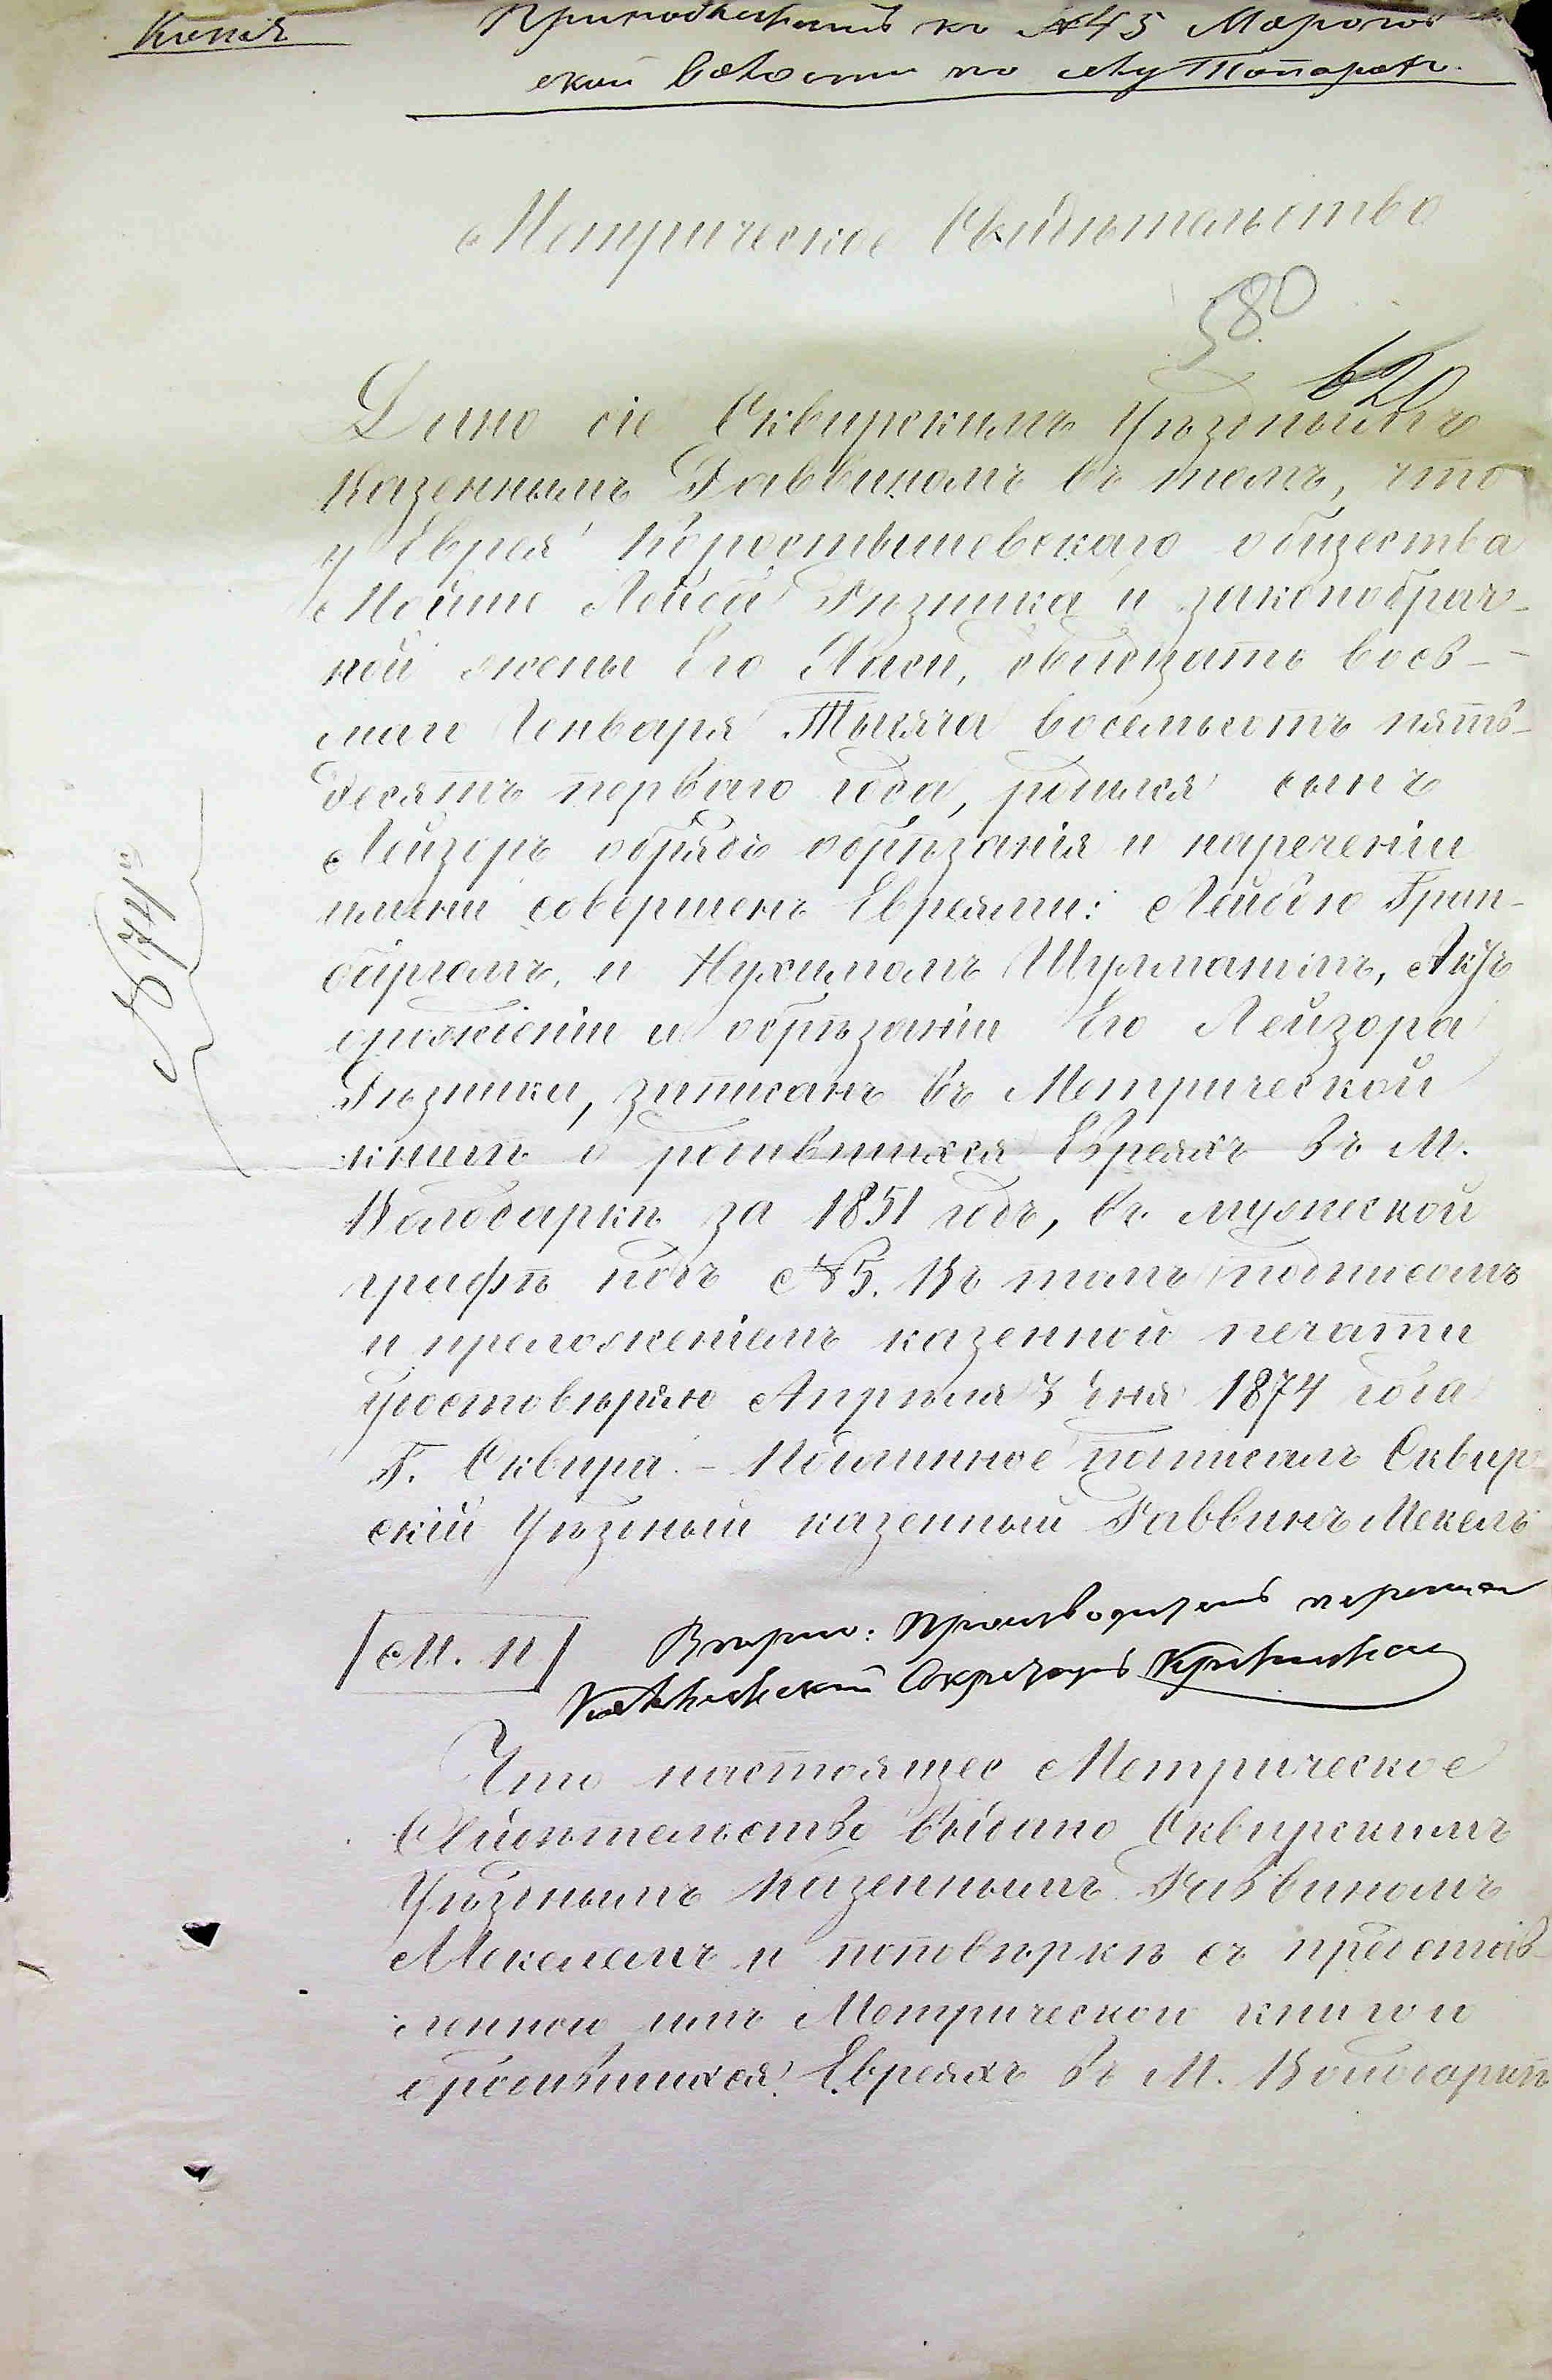 Копія
Принадлежитъ къ №45
ской волости по селу Топорахъ.
Метрическое Свидѣтельство
580
620
Дано сіе Сквирскимъ Уѣзднымъ
Казеннымъ Раввиномъ въ томъ, что
у Еврея Коростышевскаго общества
Резника и законобрач-
ной жены Его Хаси, двадцать вось-
маго Генваря Тысяча восемьсотъ пять-
десятъ перваго года, родился сынъ
Лейзоръ обрядъ обрѣзанія и нареченіи
имени совершенъ Евреями: Лейбою Грин-
бергомъ, и Нухимомъ Шулманомъ, Актъ
о рожденіи и обрѣзаніи Его Лейзора
Рѣзника, записанъ въ Метрической
книгѣ о родившихся Евреяхъ въ М.
Володаркѣ за 1851 годъ, въ мужеской
графѣ подъ №5. Въ томъ подписомъ
и приложеніемъ казенной печати
удостовѣряю Апрѣля 3 дня 1874 года
Г. Сквира. – Подлинное подписалъ Сквир
скій Уѣздный казенный Раввинъ Мекель
М. П.
Вѣрно: Производитель
Секретарь
Что настоящее Метрическое
Свидѣтельство выдано Сквирскимъ
Уѣзднымъ Казеннымъ Раввиномъ
Мекелемъ и по повѣркѣ съ представ-
ленною имъ Метрическою книгою
о родившихся Евреяхъ въ М. Володаркѣ